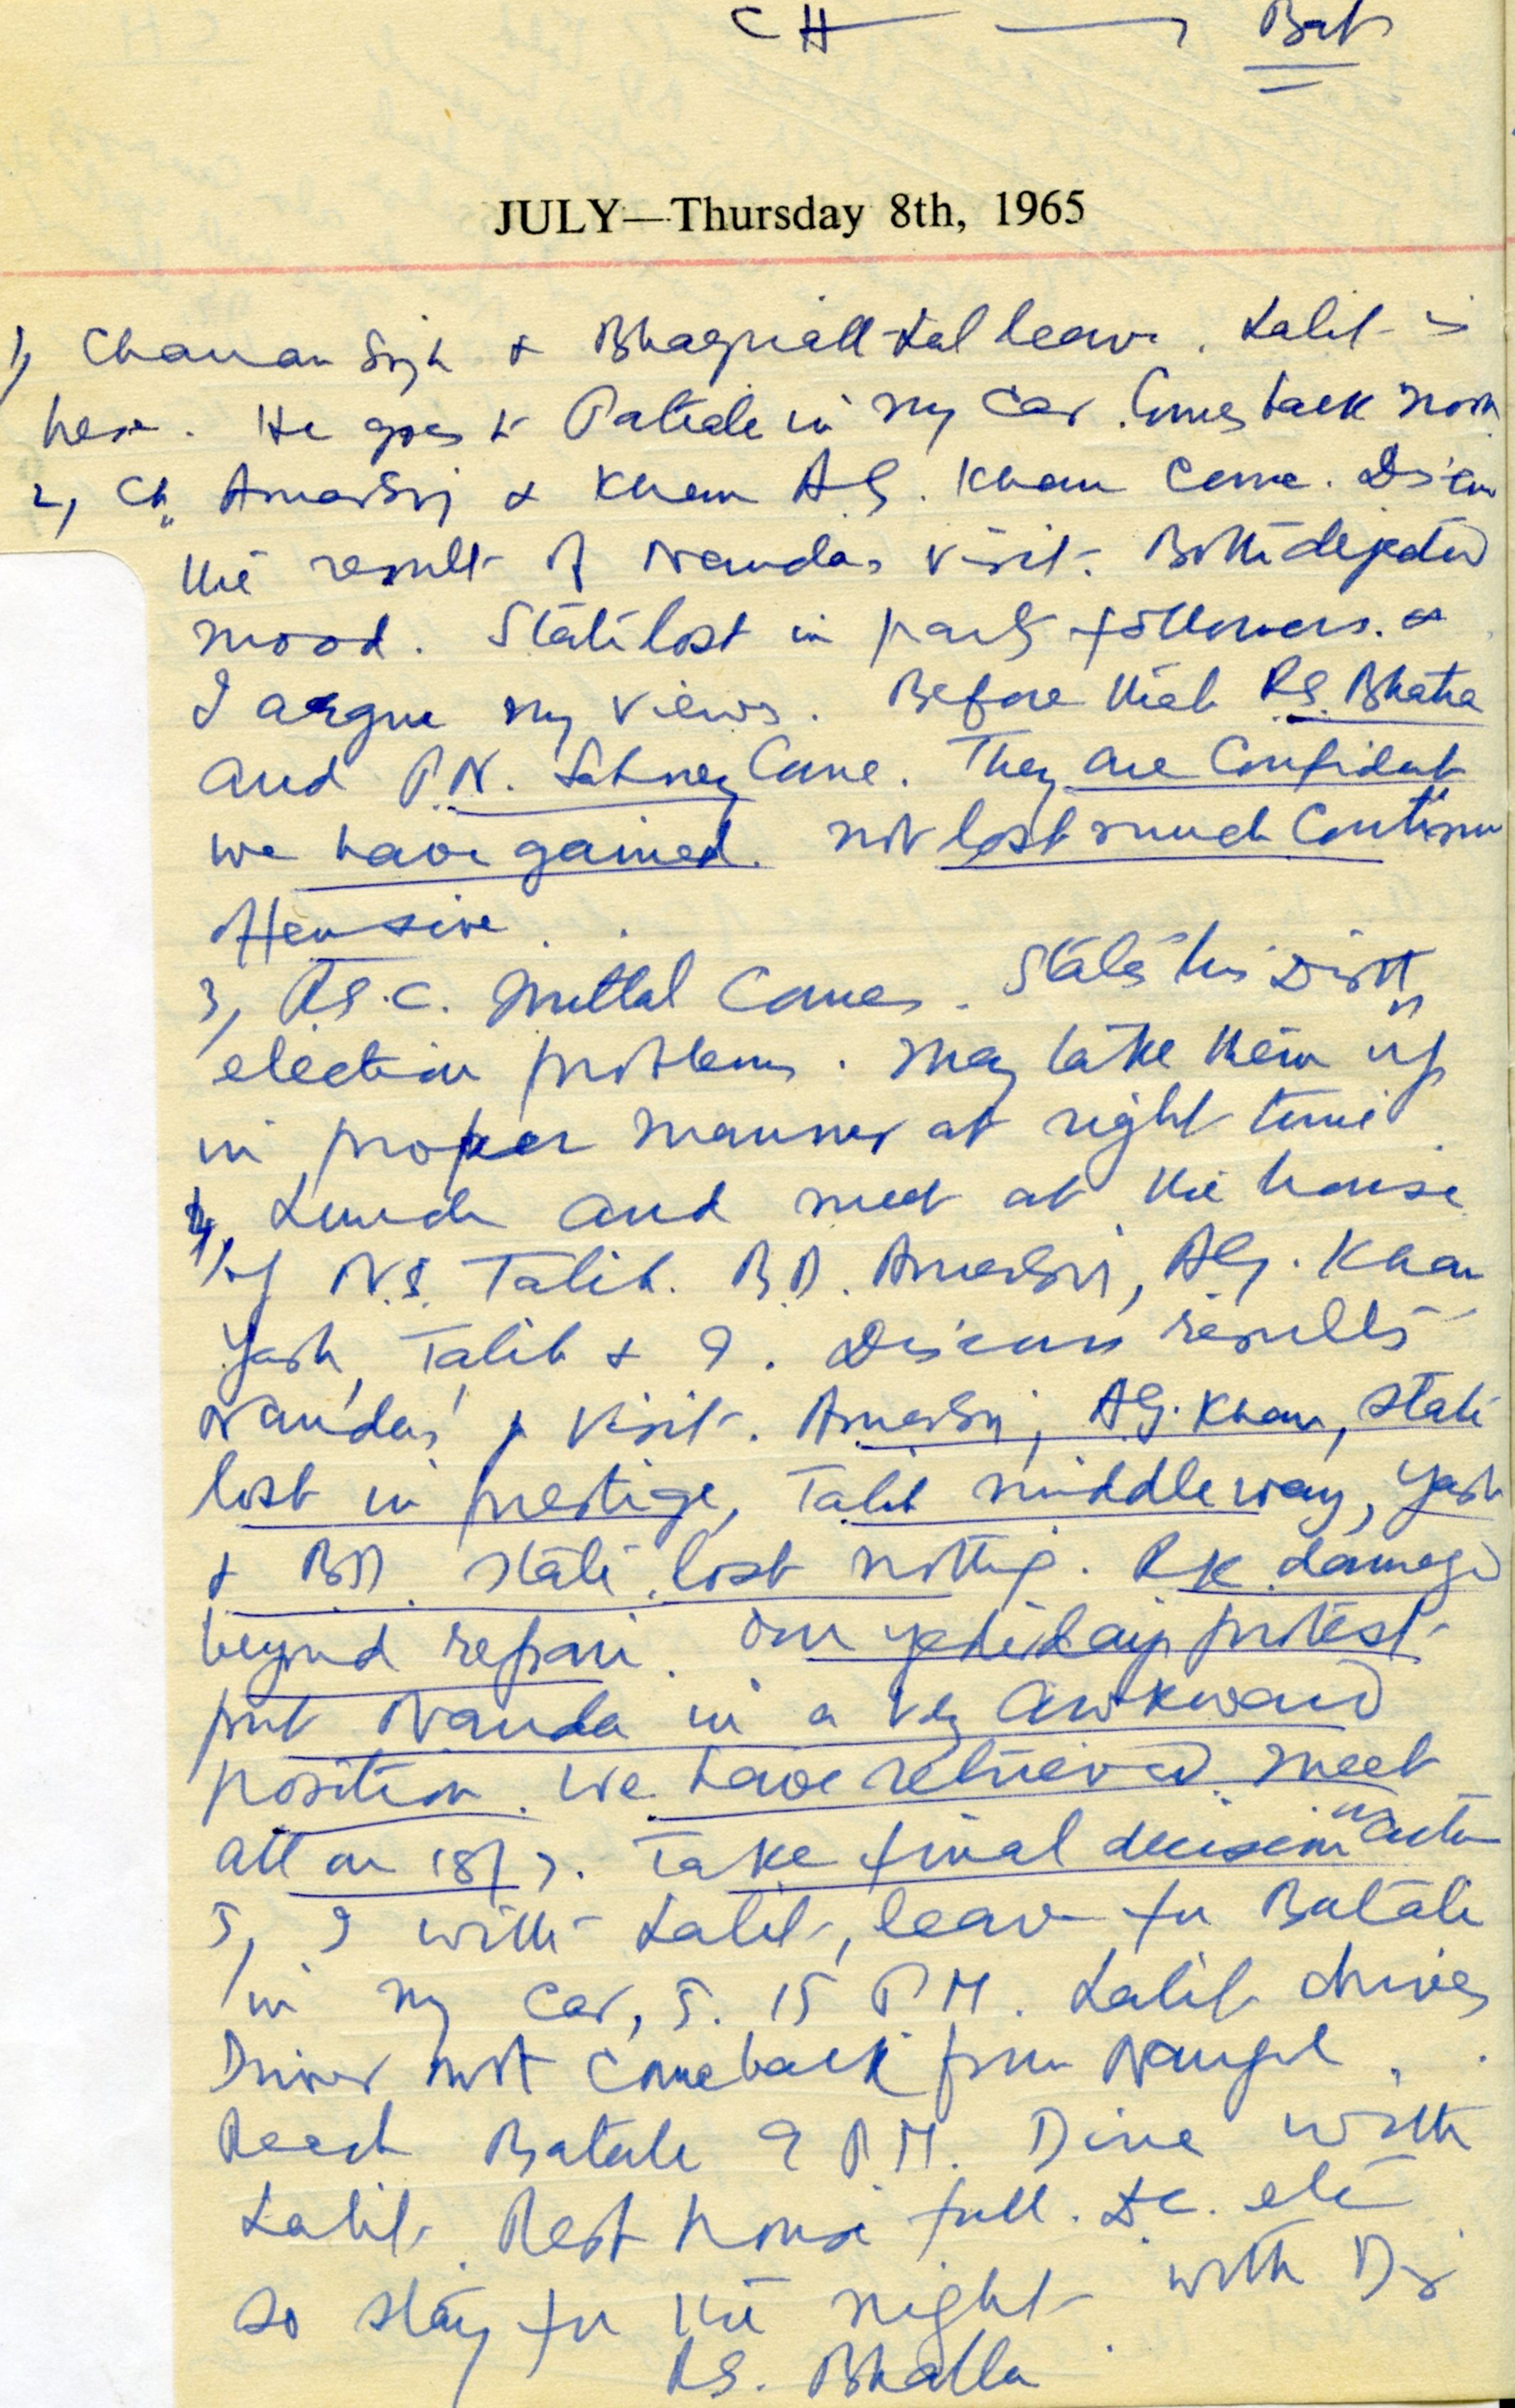 CH → Bat
JULY—Thursday 8th, 1965
1, Chanan Singh & Lal leave. Lalit is
here. He goes to Patiala in my car. Comes back noon
2, Ch. Amar Singh & Khan A.G. Khan come. Discuss
the result of Nandas visit. Both dejected
mood. State lost in party followers. &
I argue my views. Before that R.S. Bhatia
and P.N. Sahney Come. They are Confident
we have gained. not lost much Continue
offensive.
3, R.S.C. Mittal Comes. States his Distt
election problems. May take them up
in proper manner at right time
4, Lunch and meet at the house
of N.S. Talib. B.D. Amar Singh, A.G. Khan
Yash, Talib & I. Discuss results
Nandas' visit. Amar Singh, A.G. Khan, state
lost in prestige, Talib middle way, Yash
& BD. state lost nothing. RK damaged
beyond repair. Our yesterdays protest
put Nanda in a very awkward
position. We have retrieved. Meet
all on 18/7. Take final decision
5, I with Lalit, leave for Batala
in my car, 5.15 P.M. Lalit drives
Driver not come back from Nangal.
Reach Batala 9 P.M. Dine with
Lalit. Rest house full. D.C. etc
so stay for the night with
R.S. Bhalla